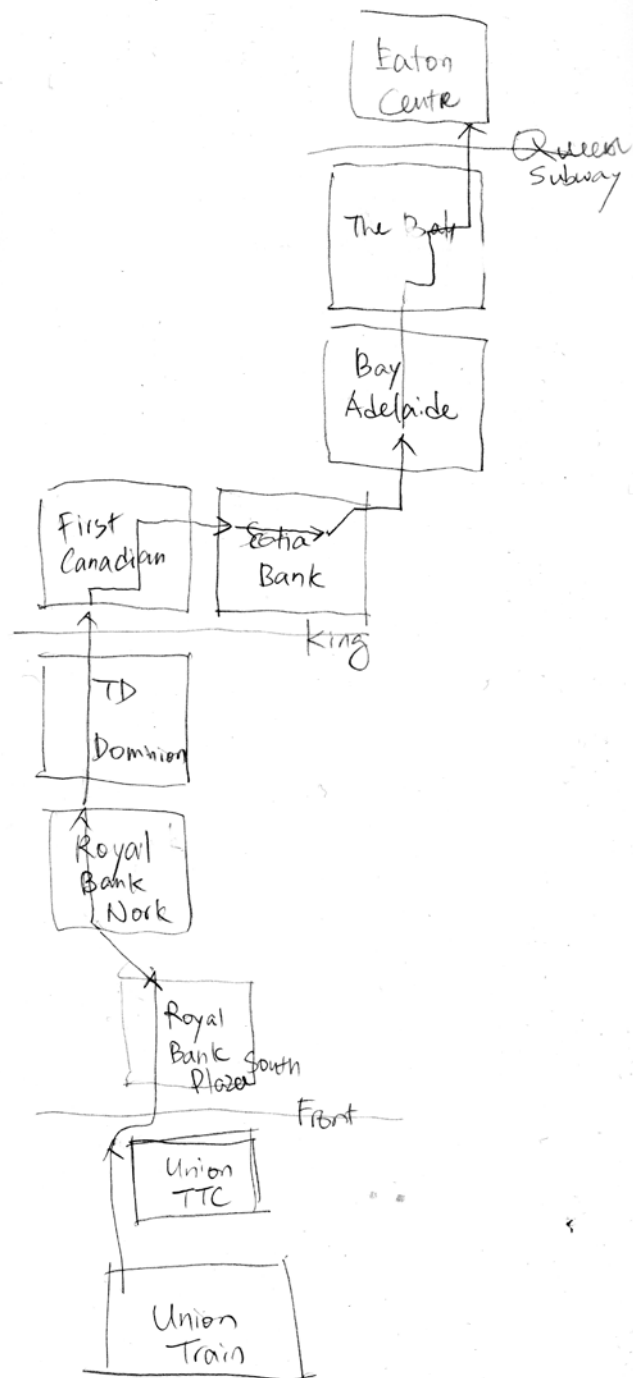 Eaton
Centre
Queen
Subway
The Bay
Bay
Adelaide
First
Canadian
Scotia
Bank
King
TD
Dominion
Royal
Bank
Nork
Royal
Bank
Plaza South
Front
Union
TTC
Union
Train